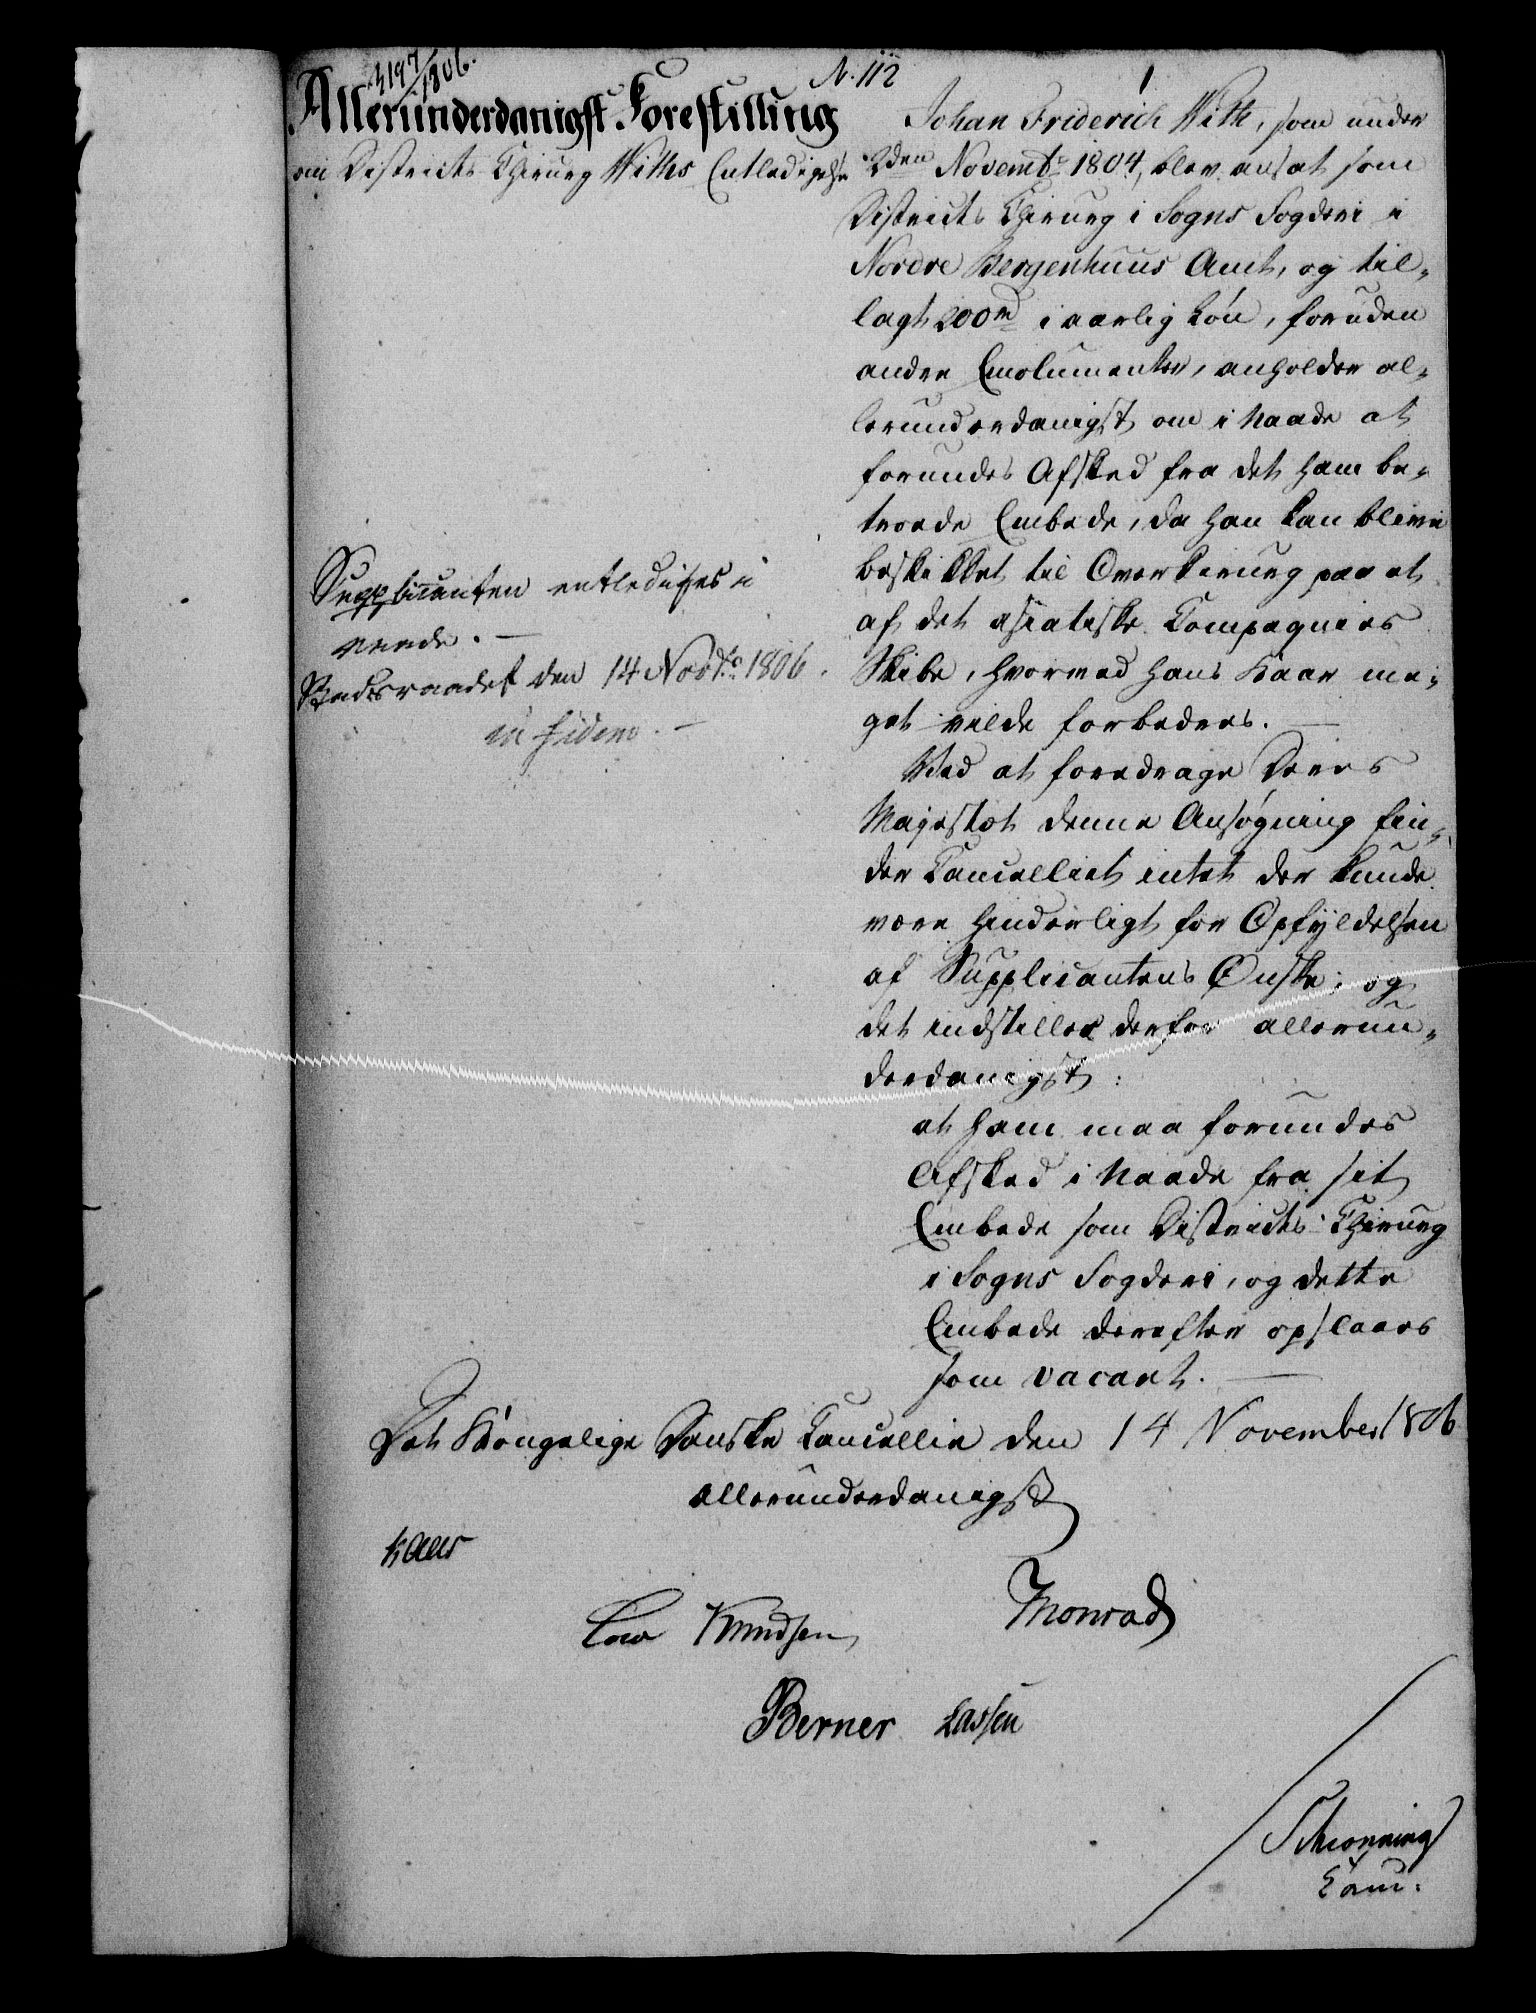 3197/1806.
N. 112
Allerunderdanigst Forestilling
om Districts Chirurg Withs Entledigelse
Supplicanten entlediges i
naade. —
Stadsraadet den 14 Novbr. 1806.
in fidem. —
1
Johan Friderich With, som under
2den Novembr 1804, blev ansat som
Districts Chirurg i Sogns Fogderi i
Nordre Bergenhuus Amt, og til-
lagt 200 rd i aarlig Løn, foruden
andre Emolumenter, anholder al-
lerunderdanigst om i Naade at
forundes Afsked fra det ham be-
troede Embede, da han kan blive
beskikket til Overkirurg paa et
af det asiatiske Compagnies
Skibe, hvorved hans Kaar me-
get vilde forbedres. —
Ved at foredrage Deres
Majestæt denne Ansøgning fin-
der Cancelliet intet der kunde
være hinderligt for Opfyldelsen
af Supplicantens Ønske; og
det indstilles derfor allerun-
derdanigst:
at ham maa forundes
Afsked i Naade fra sit
Embede som Districts-Chirurg
i Sogns Fogderi, og dette
Embede derefter opslaaes
som vacant. —
Det Kongelige Danske Cancellie den 14 November 1806
allerunderdanigst
Kaas
Cold Knudsen
Monrad
Berner Lassen
Schiønning